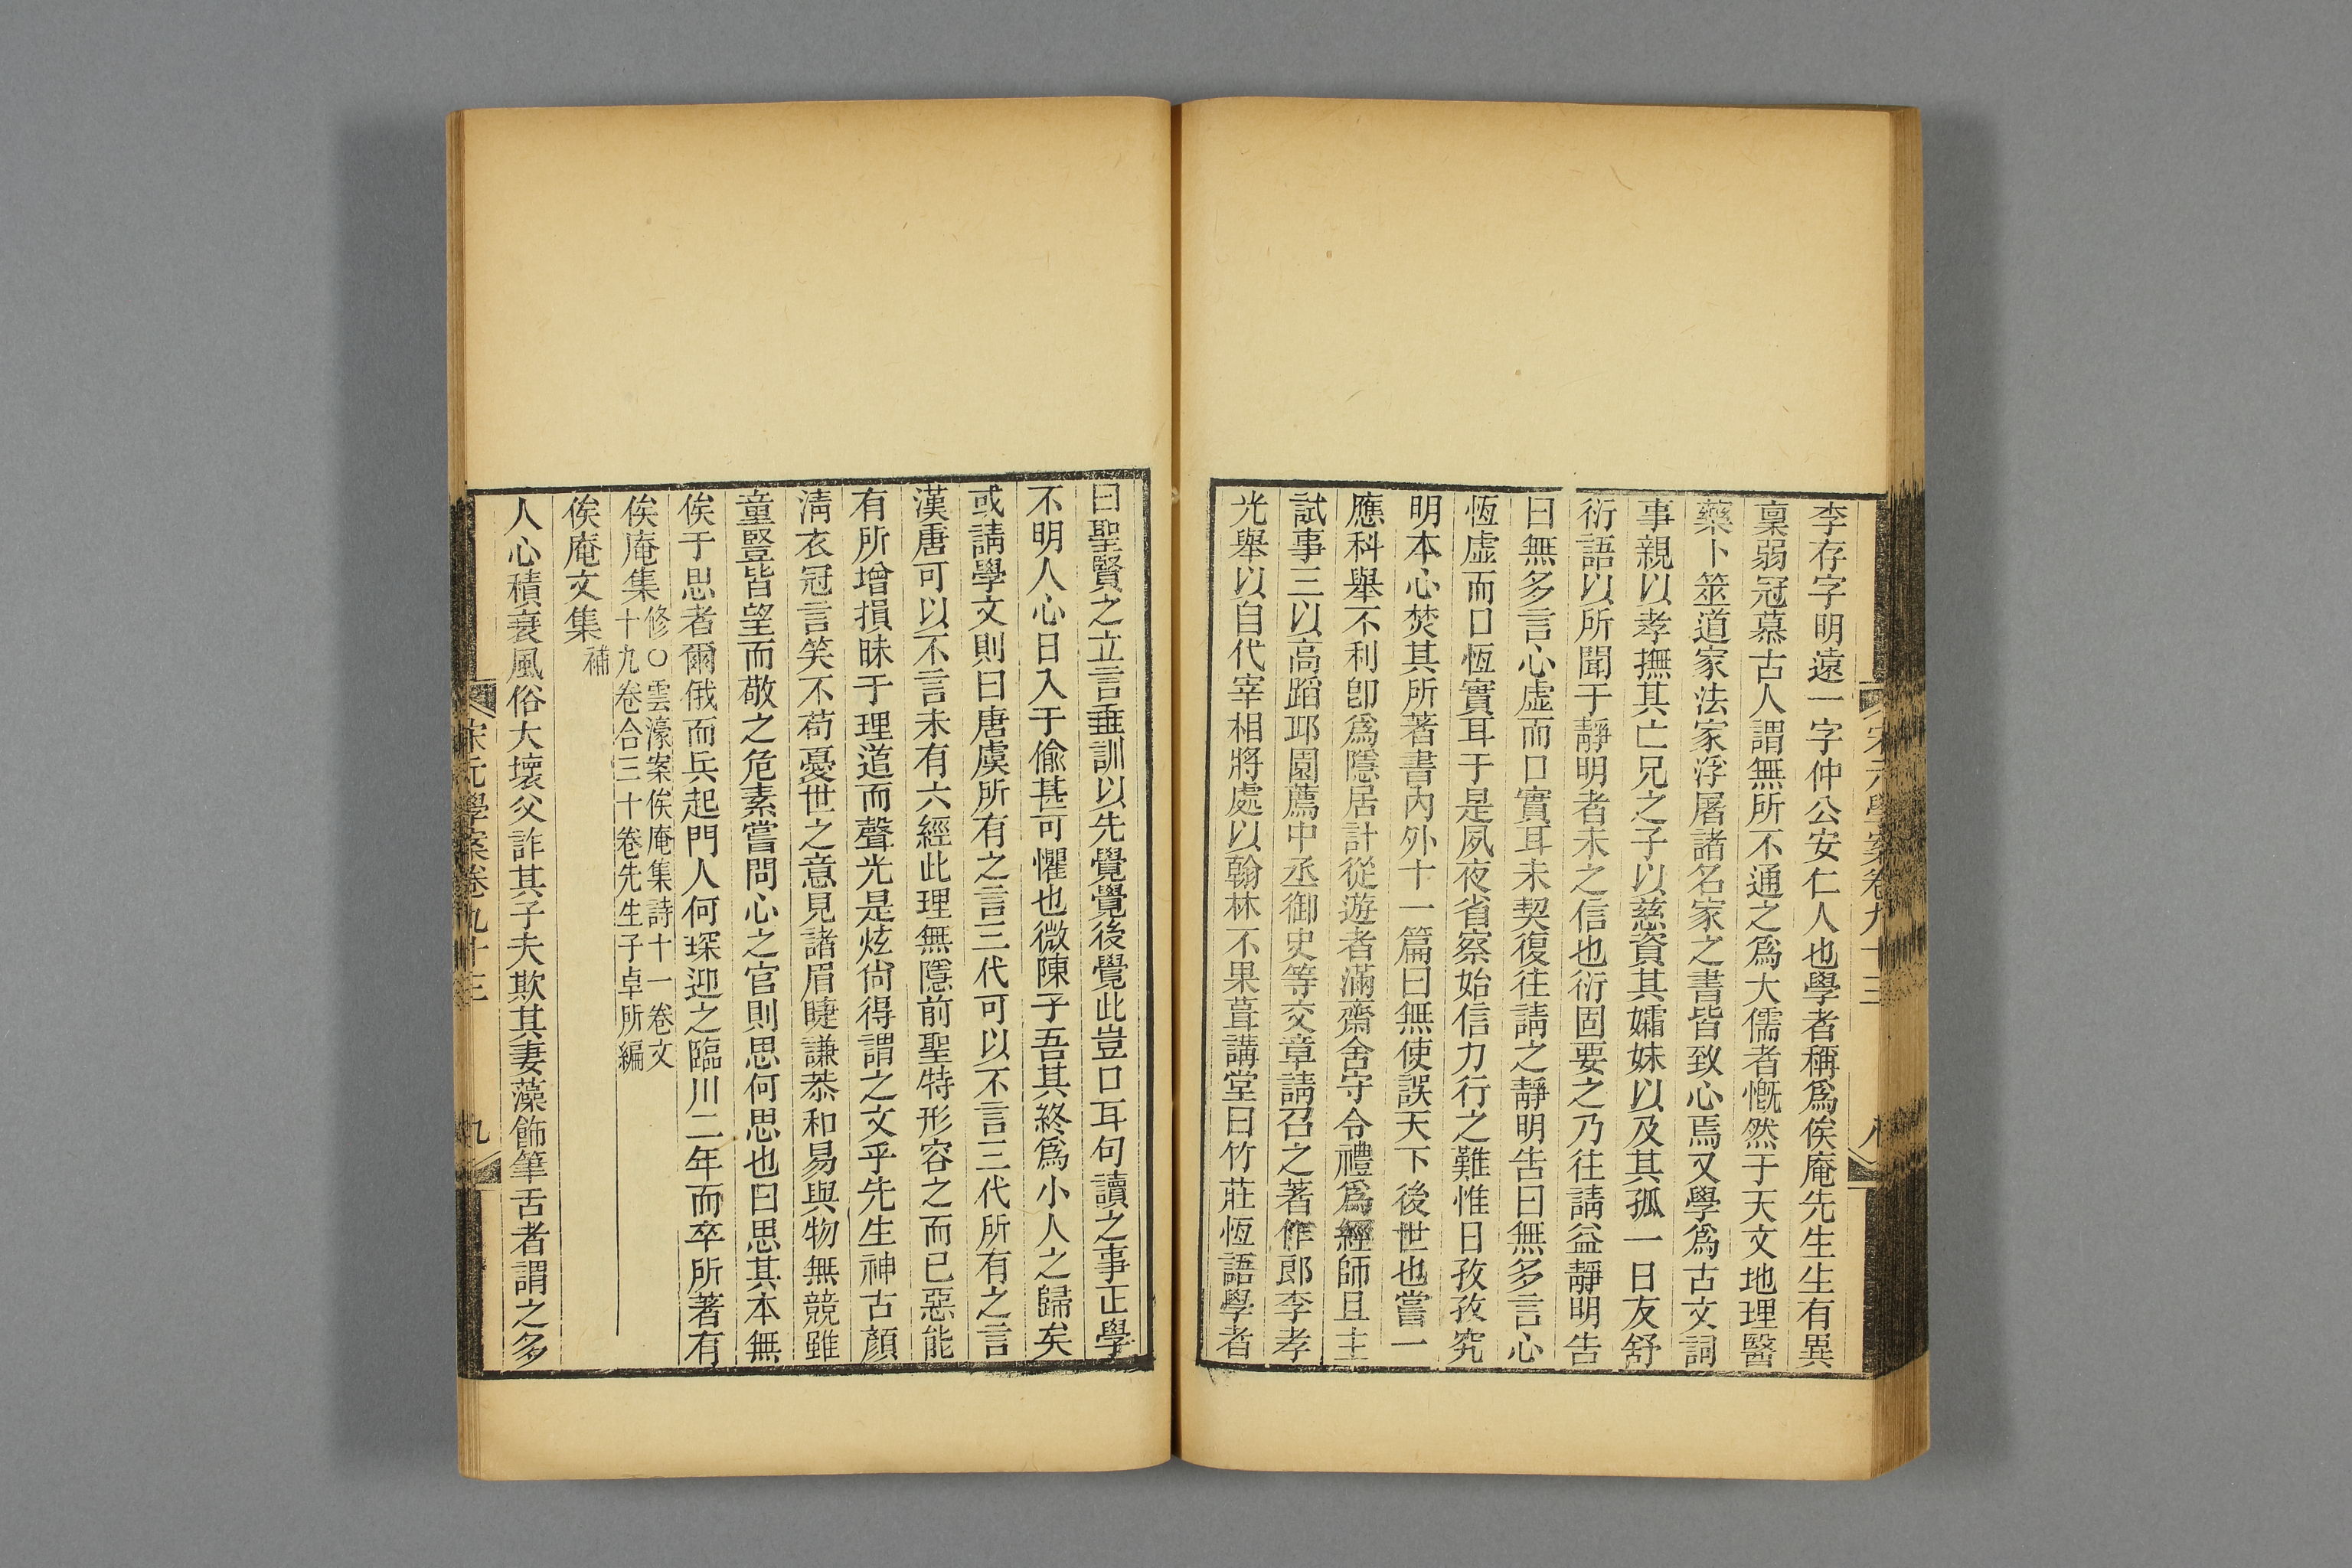 宋元學案卷九十三
八
李存字明遠一字仲公安仁人也學者稱爲俟庵先生生有異
稟弱冠慕古人謂無所不通之爲大儒者慨然于天文地理醫
藥卜筮道家法家浮屠諸名家之書皆致心焉又學爲古文詞
事親以孝撫其亡兄之子以慈資其孀妹以及其孤一日友舒
衍語以所聞于靜明者未之信也衍固要之乃往請益靜明告
曰無多言心虛而口實耳未契復往請之靜明告曰無多言心
恆虛而口恆實耳于是夙夜省察始信力行之難惟日孜孜究
明本心焚其所著書內外十一篇曰無使誤天下後世也嘗一
應科舉不利卽爲隱居計從遊者滿齋舍守令禮爲經師且主
試事三以高蹈邱園薦中丞御史等交章請召之著作郎李孝
光舉以自代宰相將處以翰林不果葺講堂曰竹莊恆語學者
曰聖賢之立言垂訓以先覺覺後覺此豈口耳句讀之事正學
不明人心日入于偷甚可懼也微陳子吾其終爲小人之歸矣
或請學文則曰唐虞所有之言三代可以不言三代所有之言
漢唐可以不言未有六經此理無隱前聖特形容之而已惡能
有所增損昧于理道而聲光是炫尙得謂之文乎先生神古顏
清衣冠言笑不苟憂世之意見諸眉睫謙恭和易與物無競雖
童豎皆望而敬之危素嘗問心之官則思何思也曰思其本無
俟于思者爾俄而兵起門人何琛迎之臨川二年而卒所著有
俟庵集修○雲濠案俟庵集詩十一卷文
十九卷合三十卷先生子卓所編
俟庵文集補
人心積衰風俗大壞父詐其子夫欺其妻藻飾筆舌者謂之多
宋元學案卷九十三
九